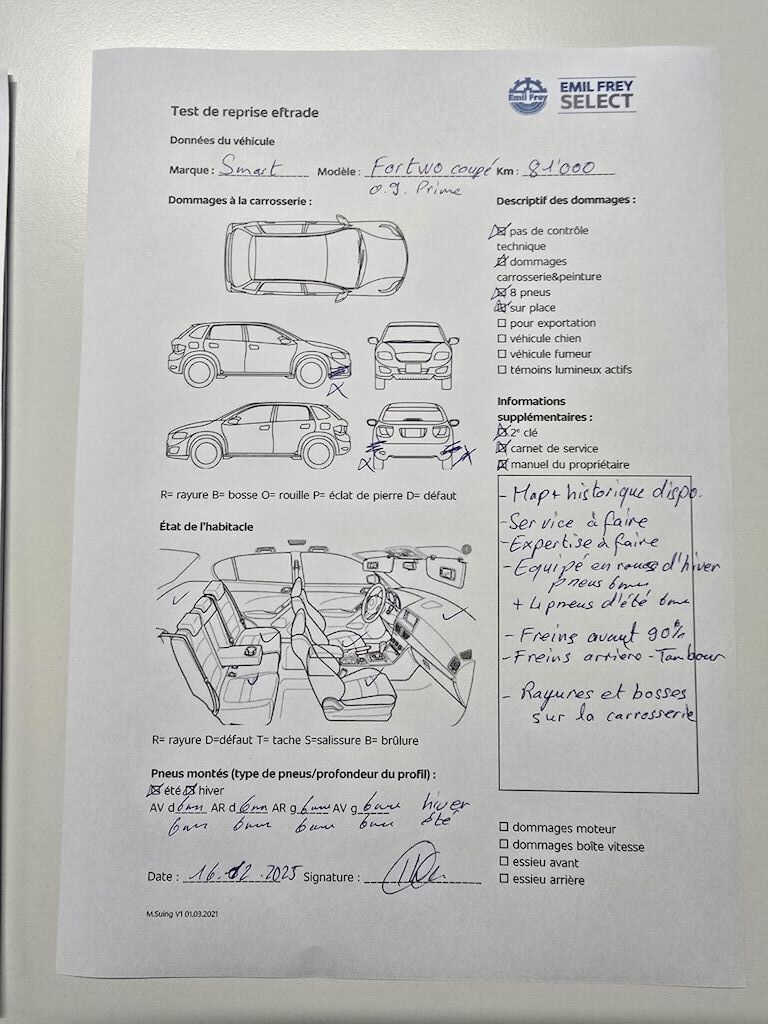 Emil Frey
EMIL FREY
SELECT
Test de reprise eftrade
Données du véhicule
Marque : Smart Modèle : Fortwo coupé Km : 81'000
0.9. Prime
Dommages à la carrosserie :
Descriptif des dommages :
pas de contrôle
technique
dommages
carrosserie&peinture
8 pneus
sur place
pour exportation
véhicule chien
véhicule fumeur
témoins lumineux actifs
X
X
X
R= rayure B= bosse O= rouille P= éclat de pierre D= défaut
Informations
supplémentaires :
2e clé
carnet de service
manuel du propriétaire
- Map + historique dispo.
- Service à faire
- Expertise à faire
- Equipé en roues d'hiver
pneus 6mm
+ 4 pneus d'été 6mm
- Freins avant 90%
- Freins arriere - Tambour
- Rayures et bosses
sur la carrosserie
État de l'habitacle
R= rayure D=défaut T= tache S=salissure B= brûlure
Pneus montés (type de pneus/profondeur du profil) :
été hiver
AV d 6mm AR d 6mm AR g 6mm AV g 6mm hiver
6mm 6mm 6mm 6mm été
dommages moteur
dommages boîte vitesse
essieu avant
essieu arrière
Date : 16.12.2025 Signature :
M.Suing V1 01.03.2021